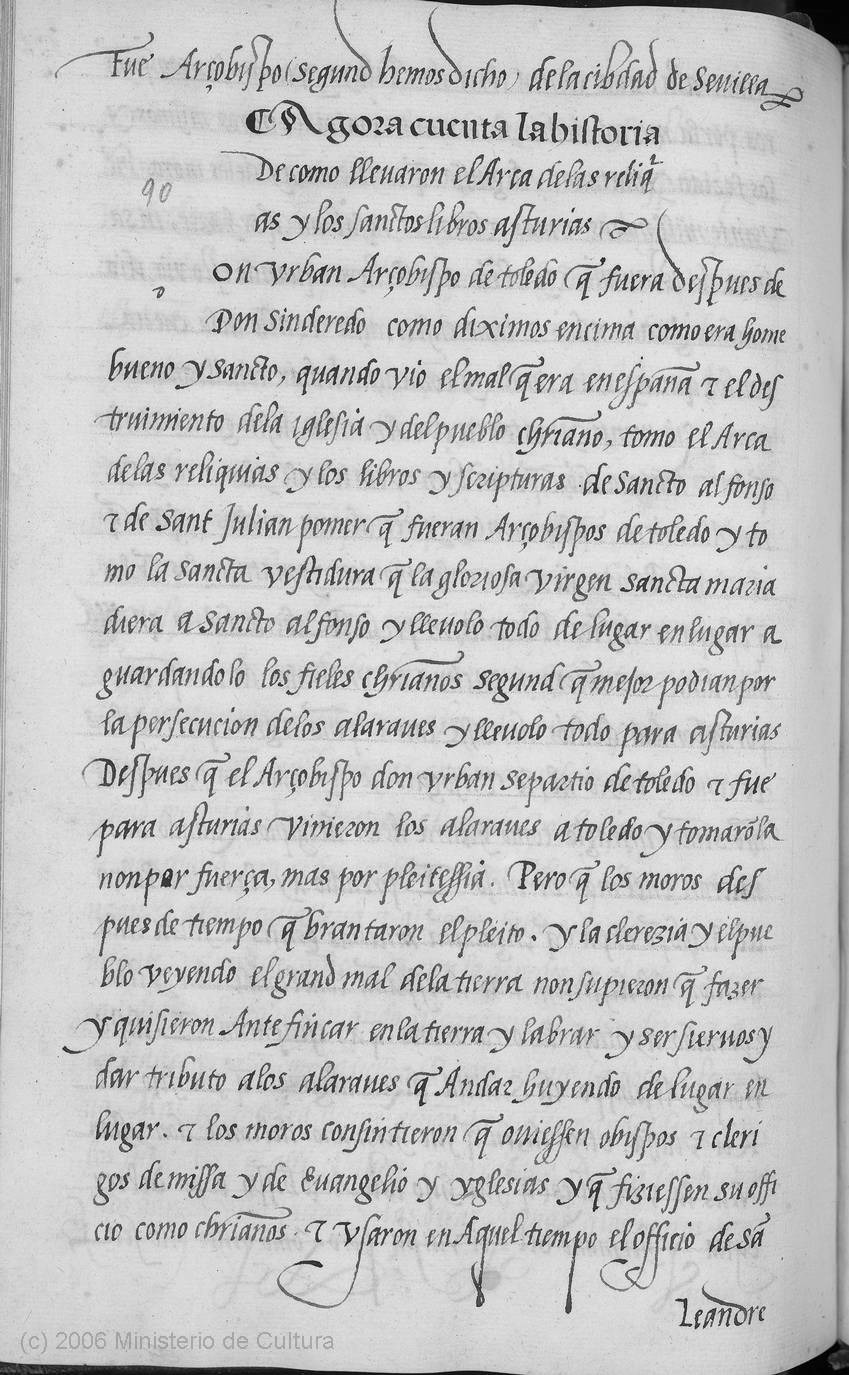 Fue Arçobispo (segund hemos dicho) dela cibdad de Sevilla
Agora cuenta la historia
De como llevaron el Arca delas reliq̃
90
as y los sanctos libros asturias
on vrban Arçobispo de toledo q̃ fuera despues de
D
Don Sinderedo como diximos encima como era home
bueno y Sancto, quando vio el mal q̃ era en españa τ el des
truimiento dela iglesia y del pueblo chr̃iano, tomo el Arca
delas reliquias y los libros y scripturas de Sancto alfonso
τ de Sant Julian pomer q̃ fueran Arçobispos de toledo y to
mo la sancta vestidura q̃ la gloriosa virgen sancta maria
diera a Sancto alfonso y llevolo todo de lugar en lugar a
guardandolo los fieles chr̃ianos segund q̃ mejor podian por
la persecucion delos alaraves y llevolo todo para asturias
Despues q̃ el Arçobispo don vrban se partio de toledo τ fue
para asturias vinieron los alaraves a toledo y tomarõ la
non por fuerça, mas por pleitessia. Pero q̃ los moros des
pues de tiempo q̃brantaron el pleito. y la clerezia y el pue
blo veyendo el grand mal dela tierra non supieron q̃ fazer
y quisieron Ante fincar en la tierra y labrar y ser siervos y
dar tributo alos alaraves q̃ Andar huyendo de lugar en
lugar. τ los moros consintieron q̃ oviessen obispos τ cleri
gos de missa y de Evangelio y yglesias y q̃ fiziessen su offi
cio como chr̃ianos. τ vsaron en Aquel tiempo el officio de sã
Leandre
(c) 2006 Ministerio de Cultura